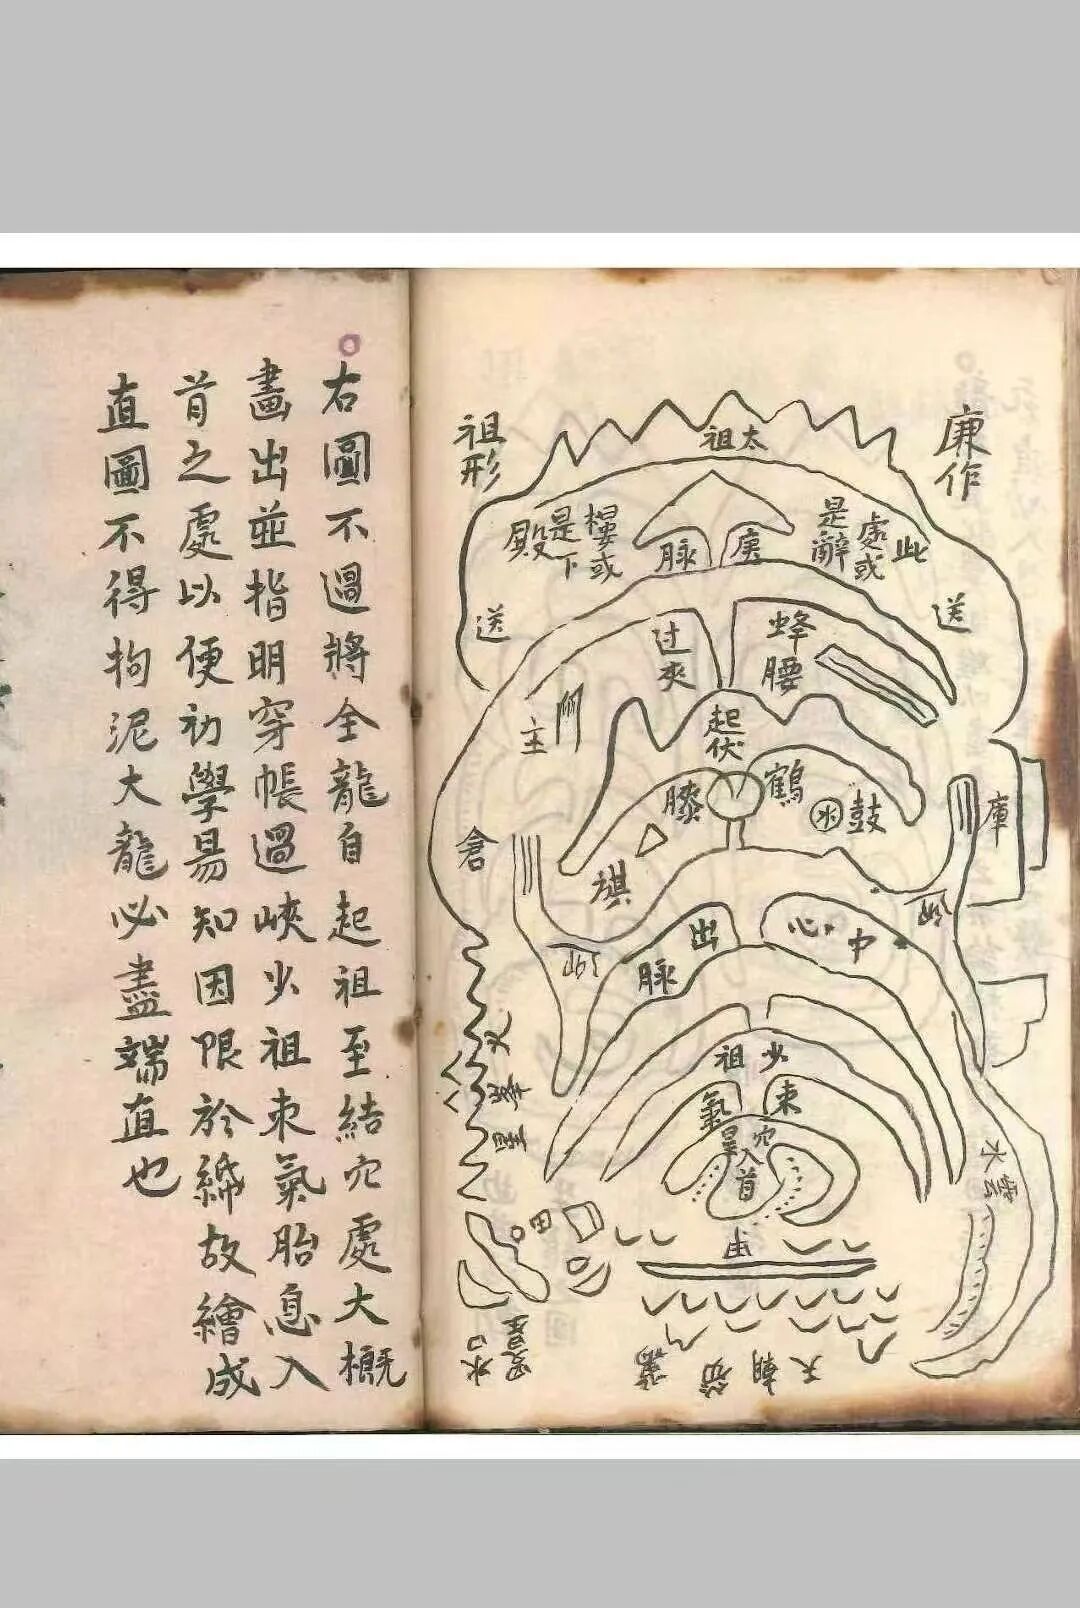 廉作
祖形
太祖
此
處或
是辭
樓或
是下
殿
脉
送
送
蜂
腰
过夾
起伏
鶴
膝
鼓
旗
庫
倉
中心
出
脉
少祖
束
氣
穴
入首
右圖不過將全龍自起祖至結穴處大概
畫出並指明穿帳過峽少祖束氣胎息入
首之處以便初學易知因限於紙故繪成
直圖不得拘泥大龍必盡端直也